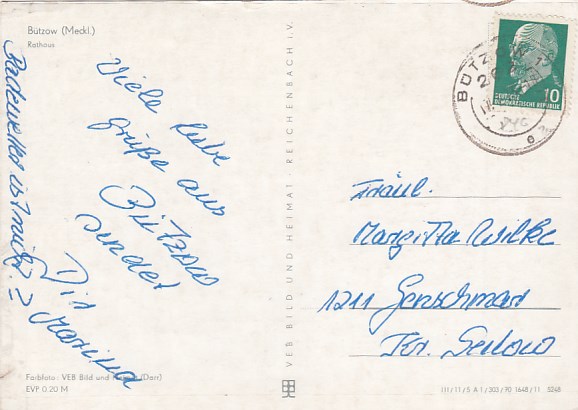 Bützow (Meckl.)
Rathaus
Viele liebe
Grüße aus
Bützow
sendet
Dir
Marina
Badewetter ist nicht.
VEB BILD UND HEIMAT REICHENBACH i.V.
BÜTZOW 1
DEUTSCHE
DEMOKRATISCHE REPUBLIK
10
Fräul.
Margitta Wilke
1211 Genschmar
Kr. Seelow
Farbfoto: VEB Bild und Heimat (Darr)
EVP 0.20 M
III/11/5 A 1/303/70 1648/11 5248